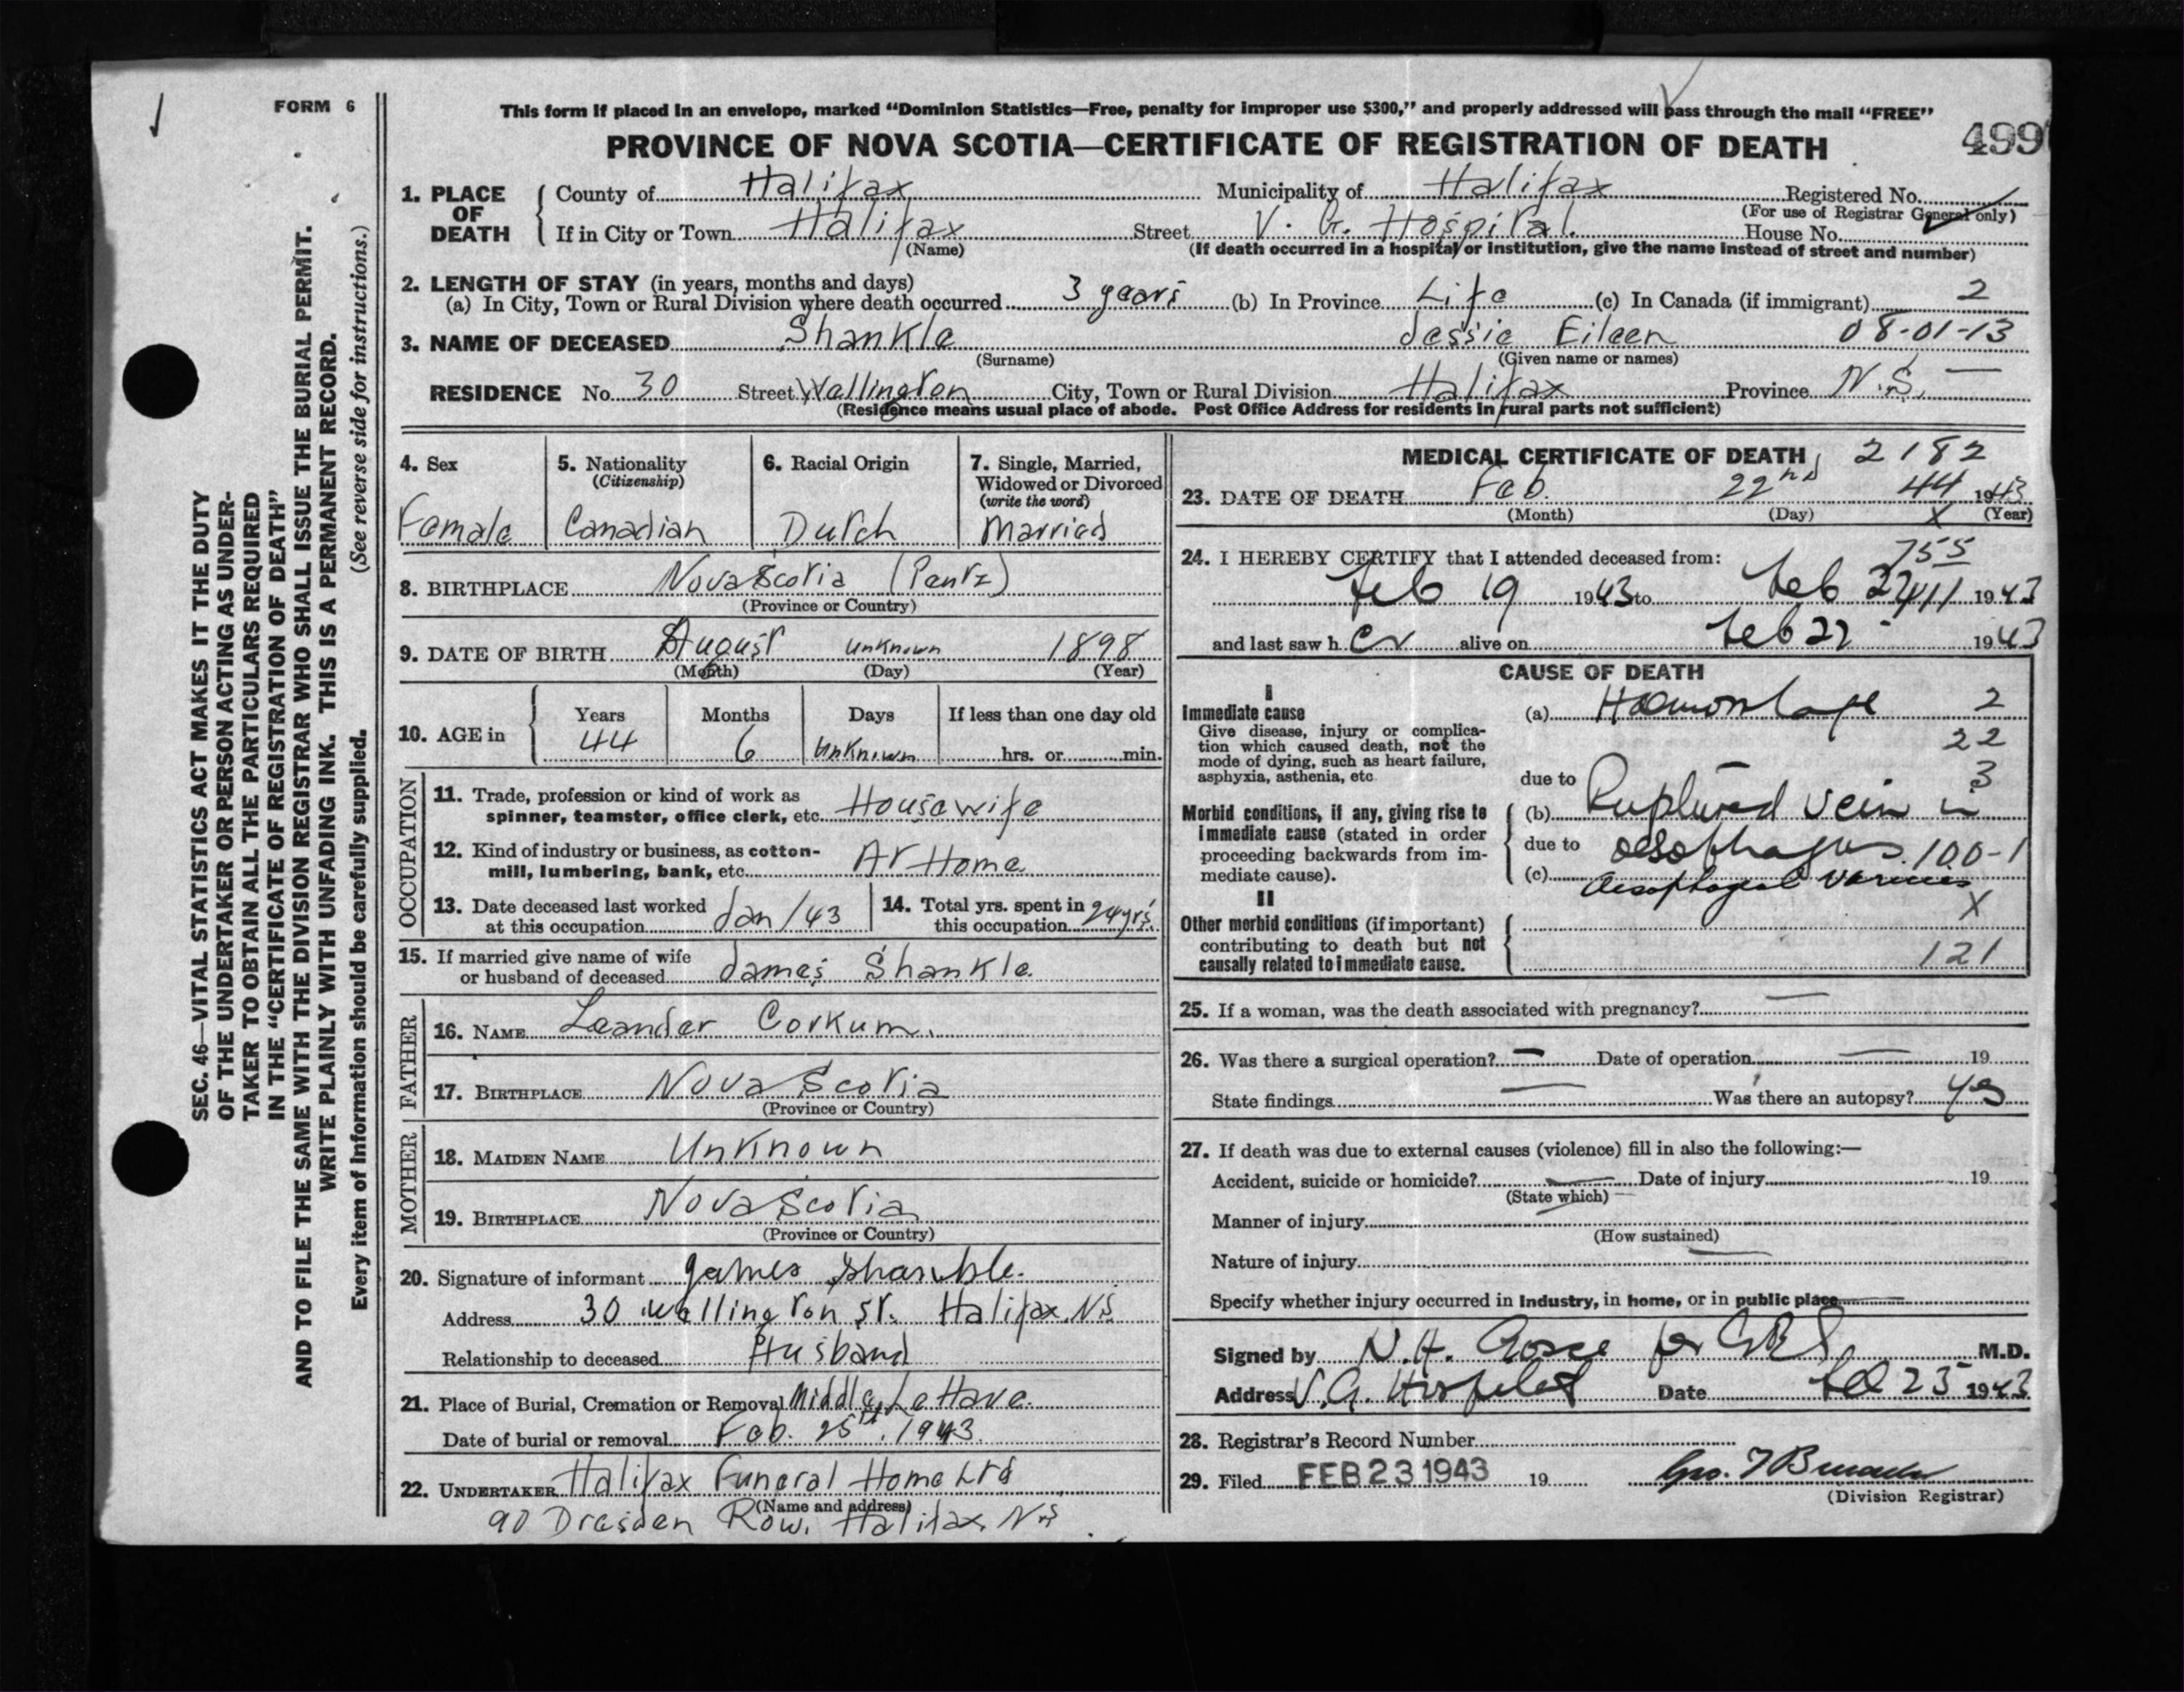 FORM 6
This form if placed in an envelope, marked “Dominion Statistics—Free, penalty for improper use $300,” and properly addressed will pass through the mail “FREE”
PROVINCE OF NOVA SCOTIA—CERTIFICATE OF REGISTRATION OF DEATH
499
SEC. 46—VITAL STATISTICS ACT MAKES IT THE DUTY
OF THE UNDERTAKER OR PERSON ACTING AS UNDER-
TAKER TO OBTAIN ALL THE PARTICULARS REQUIRED
IN THE “CERTIFICATE OF REGISTRATION OF DEATH”
AND TO FILE THE SAME WITH THE DIVISION REGISTRAR WHO SHALL ISSUE THE BURIAL PERMIT.
WRITE PLAINLY WITH UNFADING INK. THIS IS A PERMANENT RECORD.
Every item of information should be carefully supplied. (See reverse side for instructions.)
1. PLACE OF DEATH
County of Halifax Municipality of Halifax Registered No.
(For use of Registrar General only)
If in City or Town Halifax Street V. G. Hospital. House No.
(Name) (If death occurred in a hospital or institution, give the name instead of street and number)
2. LENGTH OF STAY (in years, months and days)
(a) In City, Town or Rural Division where death occurred 3 years (b) In Province Life (c) In Canada (if immigrant) 2
3. NAME OF DECEASED Shankle Jessie Eileen 08-01-13
(Surname) (Given name or names)
RESIDENCE No. 30 Street Wellington City, Town or Rural Division Halifax Province N.S.
(Residence means usual place of abode. Post Office Address for residents in rural parts not sufficient)
4. Sex
Female
5. Nationality
(Citizenship)
Canadian
6. Racial Origin
Dutch
7. Single, Married,
Widowed or Divorced
(write the word)
Married
8. BIRTHPLACE Nova Scotia (Pentz)
(Province or Country)
9. DATE OF BIRTH August unknown 1898
(Month) (Day) (Year)
10. AGE in
Years Months Days If less than one day old
44 6 Unknown hrs. or min.
OCCUPATION
11. Trade, profession or kind of work as
spinner, teamster, office clerk, etc. Housewife
12. Kind of industry or business, as cotton-
mill, lumbering, bank, etc. At Home
13. Date deceased last worked
at this occupation Jan/43
14. Total yrs. spent in
this occupation 24 yrs.
15. If married give name of wife
or husband of deceased James Shankle
FATHER
16. NAME Leander Corkum.
17. BIRTHPLACE Nova Scotia
(Province or Country)
MOTHER
18. MAIDEN NAME Unknown
19. BIRTHPLACE Nova Scotia
(Province or Country)
20. Signature of informant James Shankle.
Address 30 Wellington St. Halifax, N.S.
Relationship to deceased Husband
21. Place of Burial, Cremation or Removal Middle LaHave.
Date of burial or removal Feb. 25th, 1943.
22. UNDERTAKER Halifax Funeral Home Ltd
(Name and address)
90 Dresden Row, Halifax N.S
MEDICAL CERTIFICATE OF DEATH 2182
23. DATE OF DEATH Feb. 22nd 44 1943
(Month) (Day) X (Year)
24. I HEREBY CERTIFY that I attended deceased from: 755
Feb 19 1943 to Feb 22 411 1943
and last saw h er alive on Feb 22 1943
CAUSE OF DEATH
I
Immediate cause
Give disease, injury or complica-
tion which caused death, not the
mode of dying, such as heart failure,
asphyxia, asthenia, etc.
(a) Haemorrhage 2
22
3
due to
Morbid conditions, if any, giving rise to
immediate cause (stated in order
proceeding backwards from im-
mediate cause).
(b) Ruptured vein in
due to oesophagus. 100-1
(c) Oesophageal varices
X
II
Other morbid conditions (if important)
contributing to death but not
causally related to immediate cause.
121
25. If a woman, was the death associated with pregnancy? —
26. Was there a surgical operation? — Date of operation — 19
State findings — Was there an autopsy? yes
27. If death was due to external causes (violence) fill in also the following:—
Accident, suicide or homicide? Date of injury 19
(State which)
Manner of injury
(How sustained)
Nature of injury
Specify whether injury occurred in industry, in home, or in public place
Signed by N. H. Gosse for M.D.
Address V.G. Hospital Date Feb 23 1943
28. Registrar's Record Number
29. Filed FEB 23 1943 19
Geo.
(Division Registrar)